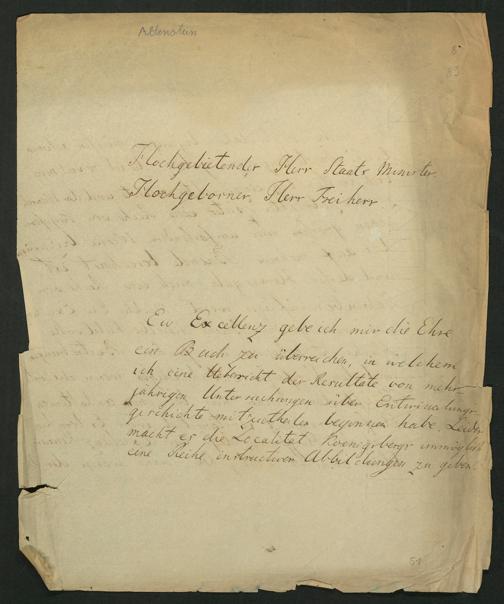 Altenstein
8
83
Hochgebietender Herr Staats Minister,
Hochgeborner, Herr Freiherr
Ew Excellenz gebe ich mir die Ehre
ein Buch zu überreichen, in welchem
ich eine Uebersicht der Resultate von mehr-
jährigen Untersuchungen über Entwickelungs-
geschichte mitzutheilen begonnen habe. Leider
macht es die Localität Koenigsbergs unmöglich
eine Reihe instructiver Abbildungen zu geben.